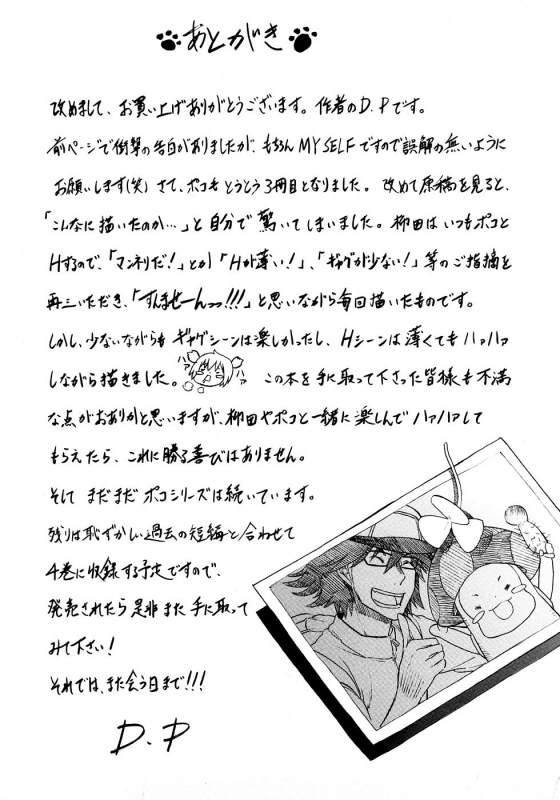 あとがき
改めまして、お買い上げありがとうございます。作者のD.Pです。
前ページで衝撃の告白がありましたが、もちろんMYSELFですので誤解の無いように
お願いします(笑)さて、ポコもとうとう3冊目となりました。改めて原稿を見ると、
「こんなに描いたのか…」と自分で驚いてしまいました。柳田はいつもポコと
Hするので、「マンネリだ!」とか「Hが薄い!」、「ギャグが少ない!」等のご指摘を
再三いただき、「すんませーんっっ!!!」と思いながら毎回描いたものです。
しかし、少ないながらもギャグシーンは楽しかったし、Hシーンは薄くてもハァハァ
しながら描きました。ハァ ハァ この本を手に取って下さった皆様も不満
な点がおありかと思いますが、柳田やポコと一緒に楽しんでハァハァして
もらえたら、これに勝る喜びはありません。
そしてまだまだポコシリーズは続いています。
残りは恥ずかしい過去の短編と合わせて
4巻に収録する予定ですので、
発売されたら是非また手に取って
みて下さい!
それでは、また会う日まで!!!
D.P